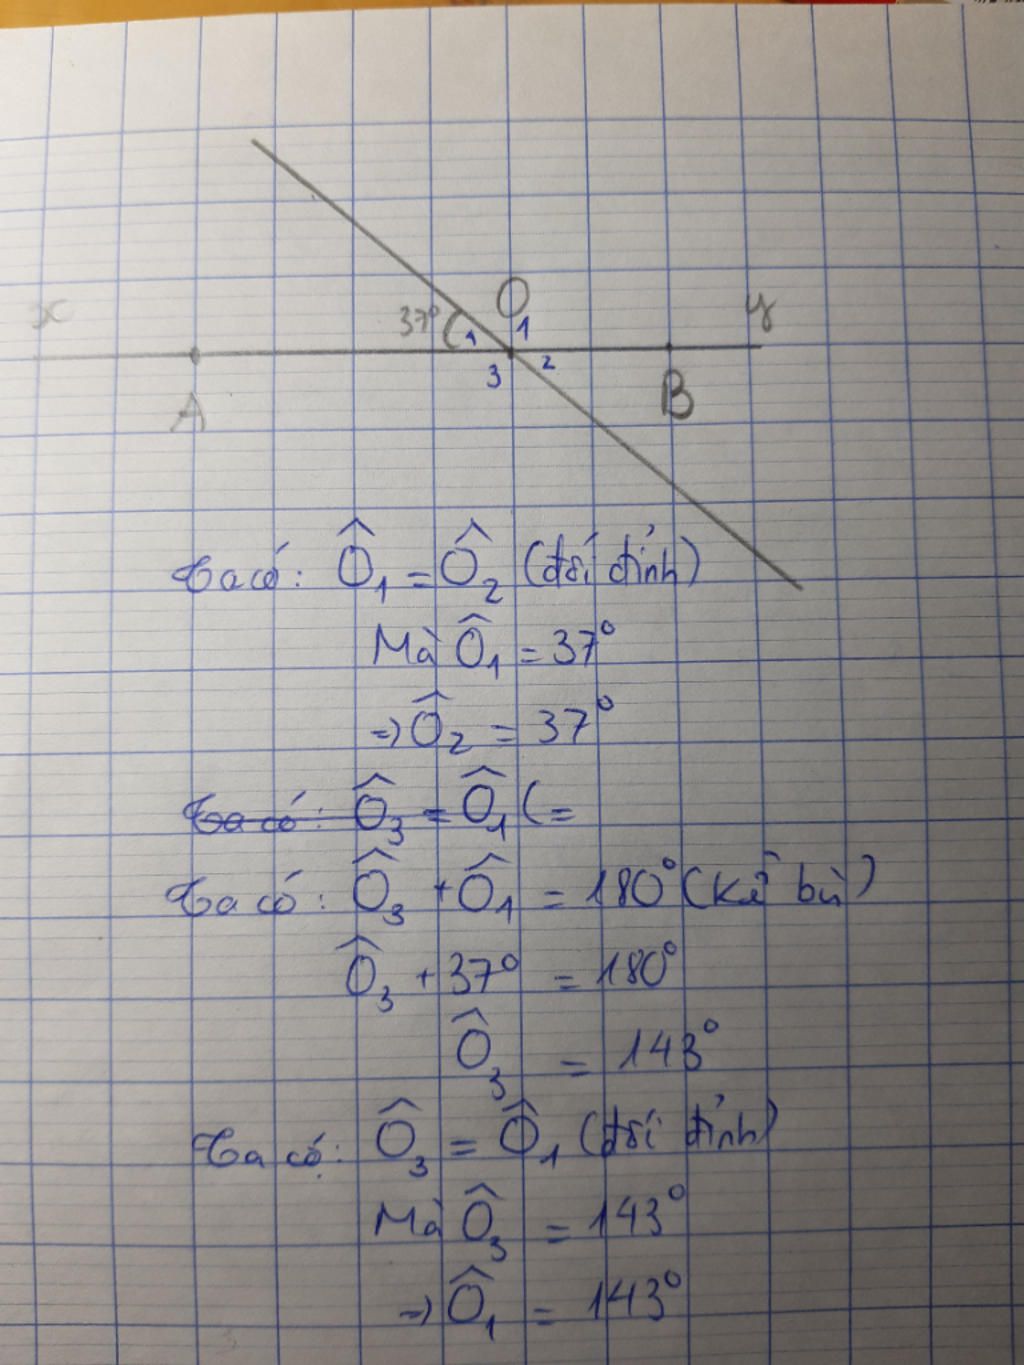 O
x 37° 1 1 y
3 2
A B
Ta có: Ô₁ = Ô₂ (đối đỉnh)
Mà Ô₁ = 37°
=> Ô₂ = 37°
Ta có: Ô₃ = Ô₁ (=
Ta có: Ô₃ + Ô₁ = 180° (kề bù)
Ô₃ + 37° = 180°
Ô₃ = 143°
Ta có: Ô₃ = Ô₁ (đối đỉnh)
Mà Ô₃ = 143°
=> Ô₁ = 143°